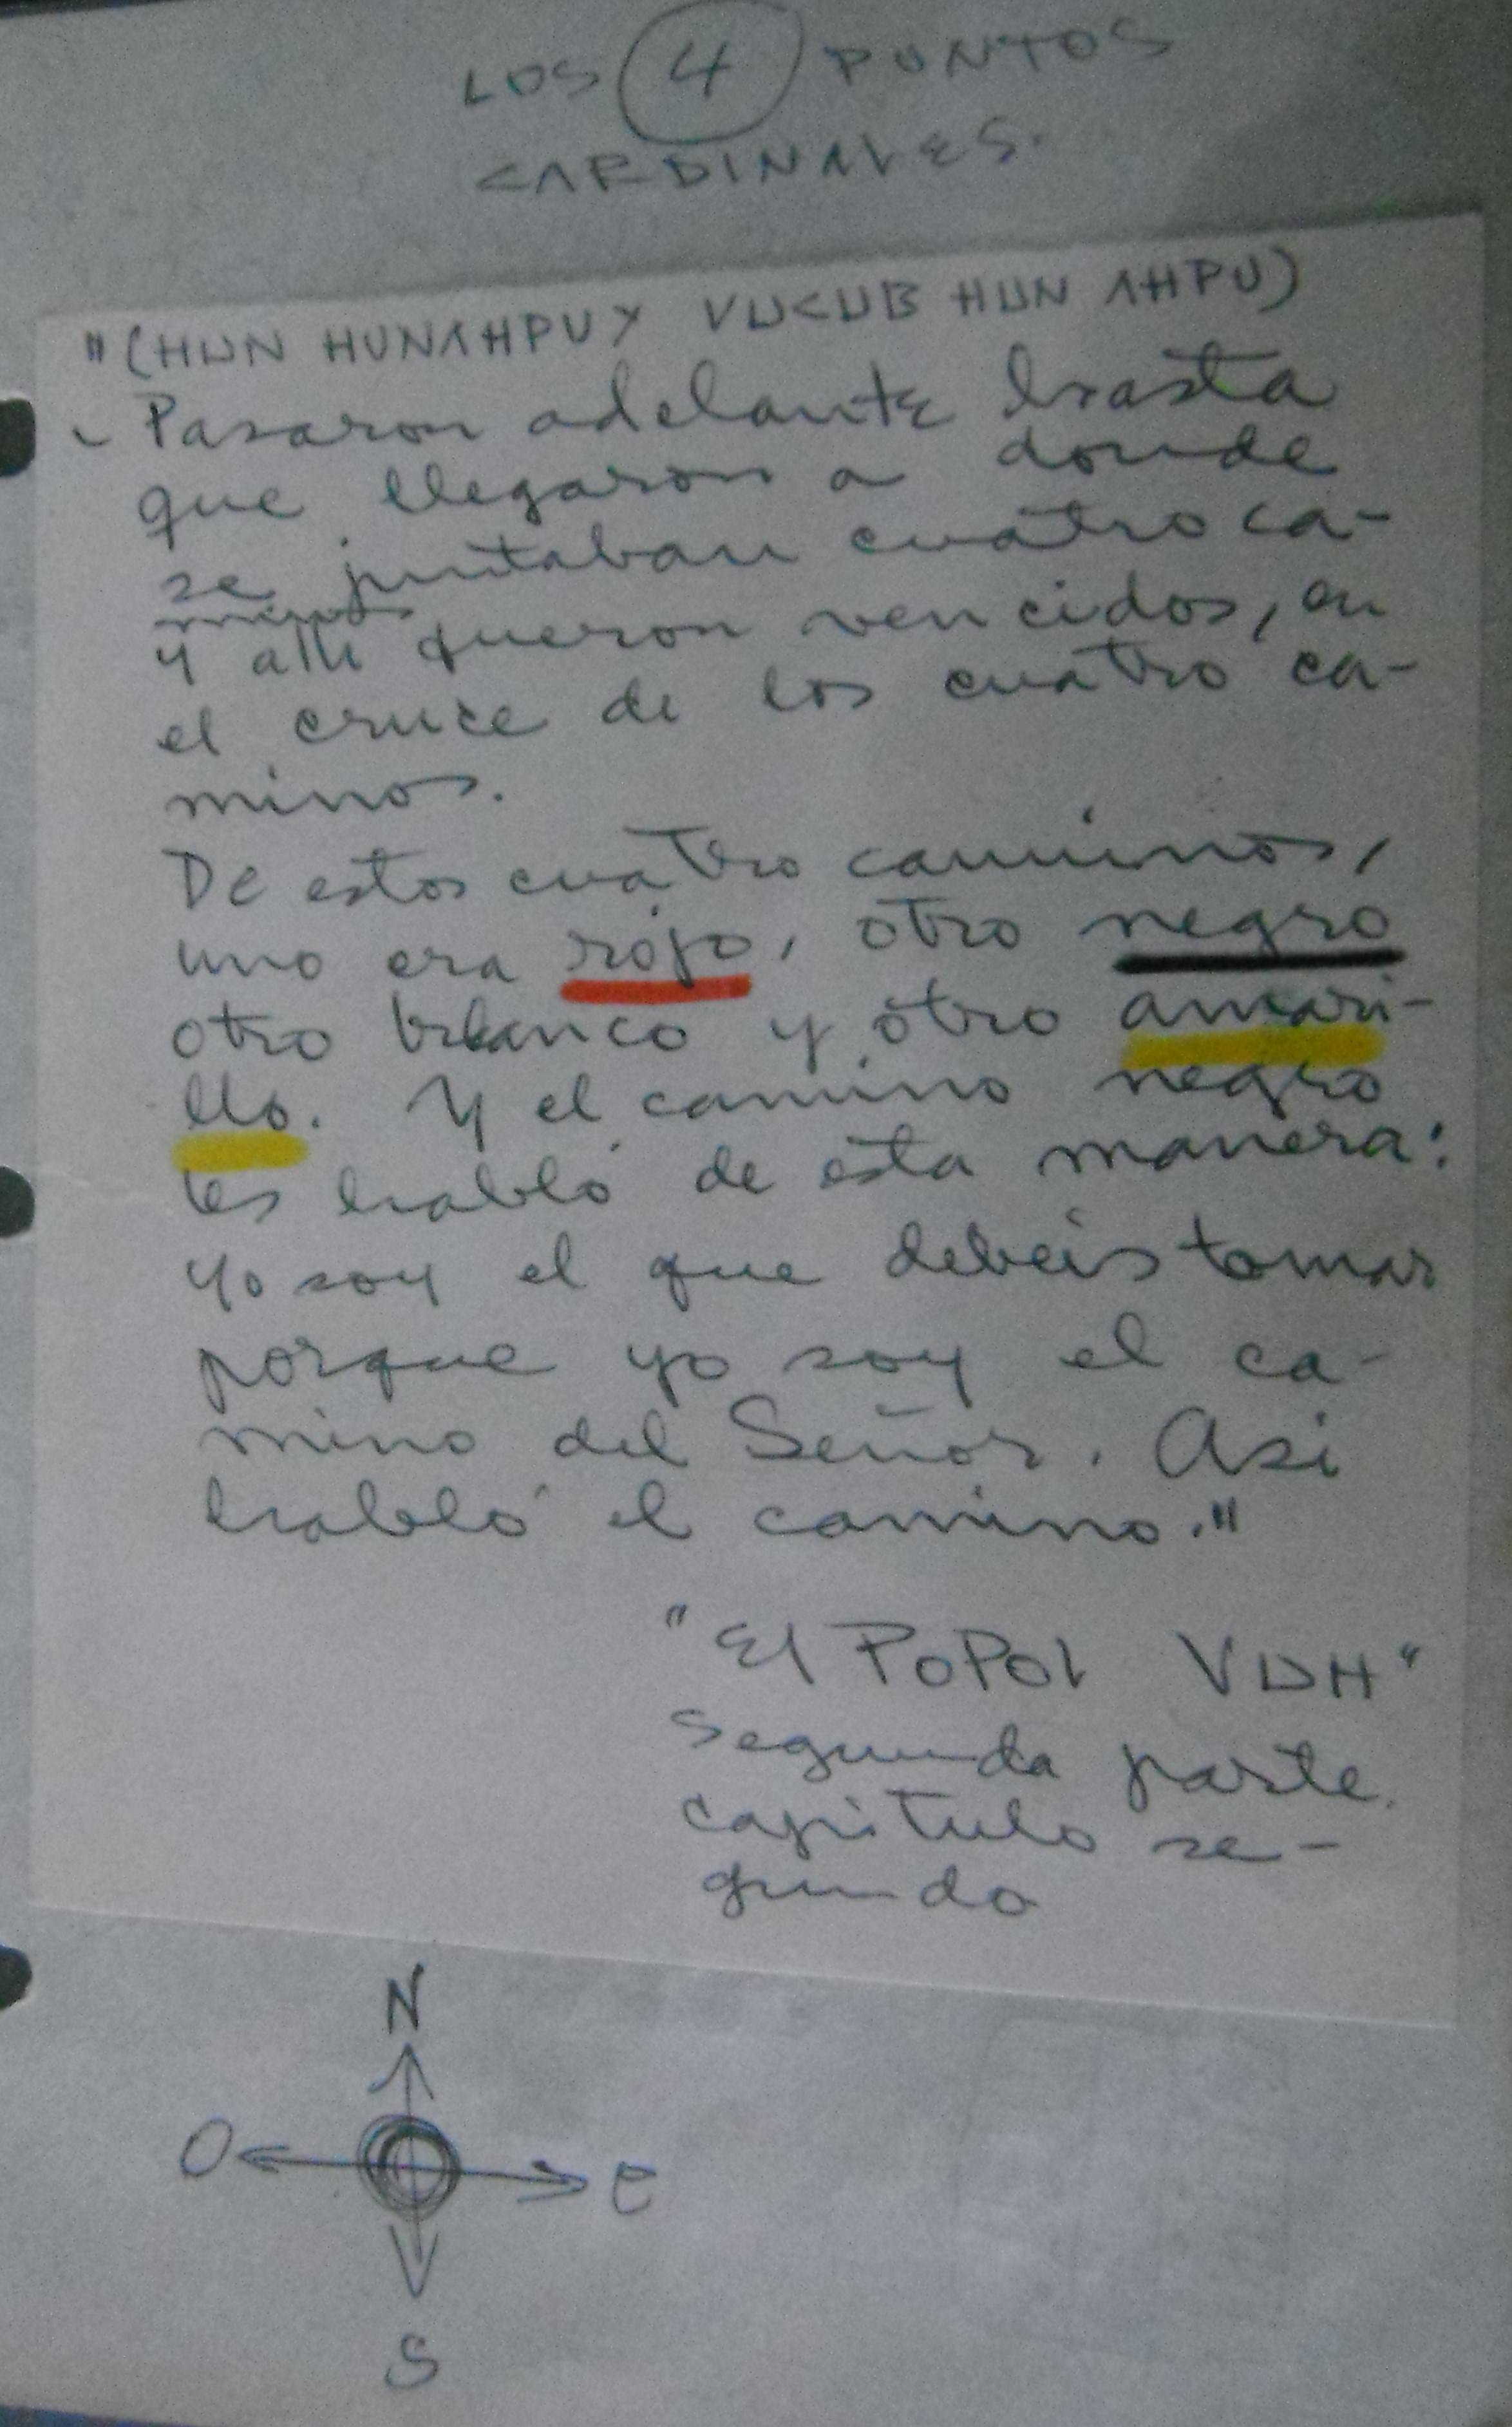 LOS 4 PUNTOS
CARDINALES.
"(HUN HUNAHPU Y VUCUB HUN AHPU)
- Pasaron adelante hasta
que llegaron a donde
se juntaban cuatro ca-
minos
y alli fueron vencidos, en
el cruce de los cuatro ca-
minos.
De estos cuatro caminos,
uno era rojo, otro negro
otro blanco y otro amari-
llo. Y el camino negro
les habló de esta manera:
yo soy el que debeis tomar
porque yo soy el ca-
mino del Señor. Asi
habló el camino."
"El POPOL VUH"
Segunda parte.
capitulo se-
gundo
N
O E
S